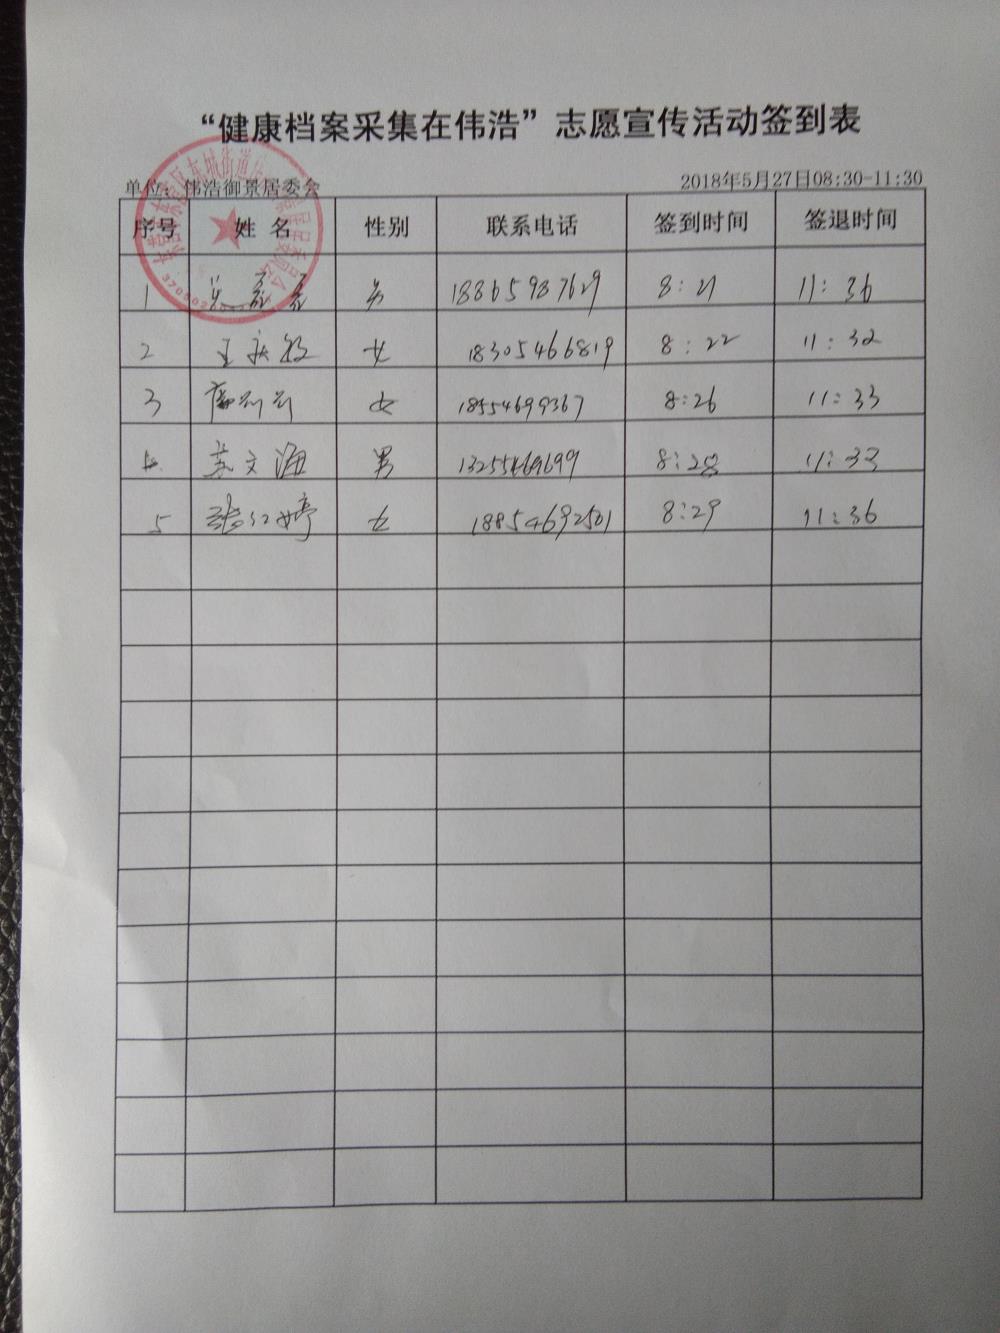 “健康档案采集在伟浩”志愿宣传活动签到表
单位：伟浩御景居委会 2018年5月27日08:30-11:30
序号 姓 名 性别 联系电话 签到时间 签退时间
1 男 18865987629 8:21 11:36
2 王 女 18305466819 8:22 11:32
3 女 18554699367 8:26 11:33
4 文海 男 13255469699 8:28 11:33
5 张红婷 女 18854692501 8:29 11:36